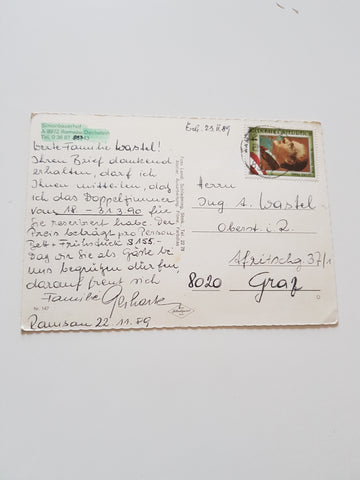 Schönbauerhof
A 8972 Ramsau-Dachstein
Tel. 0 36 87
Erh. 23.11.89
Werte Familie Wastel!
Ihren Brief dankend
erhalten, darf ich
Ihnen mitteilen, daß
ich das Doppelzimmer
vom 18 - 31.3.90 für
Sie reserviert habe. Der
Preis beträgt pro Person
Bett + Frühstück S 155.-
Daß wir Sie als Gäste bei
uns begrüßen dürfen,
darauf freut sich
Familie Gerhart
Ramsau 22.11.89
Nr. 147
Herrn
Ing A. Wastel
Oberst i. R.
Afritschg. 37/1
8020 Graz